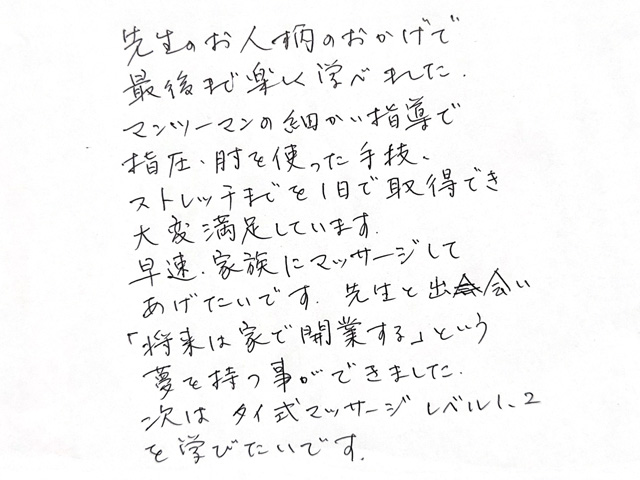 先生のお人柄のおかげで
最後まで楽しく学べました.
マンツーマンの細かい指導で
指圧、肘を使った手技、
ストレッチまでを1日で取得でき
大変満足しています.
早速、家族にマッサージして
あげたいです. 先生と出会い
「将来は家で開業する」という
夢を持つ事ができました.
次は タイ式マッサージ レベル1、2
を学びたいです.